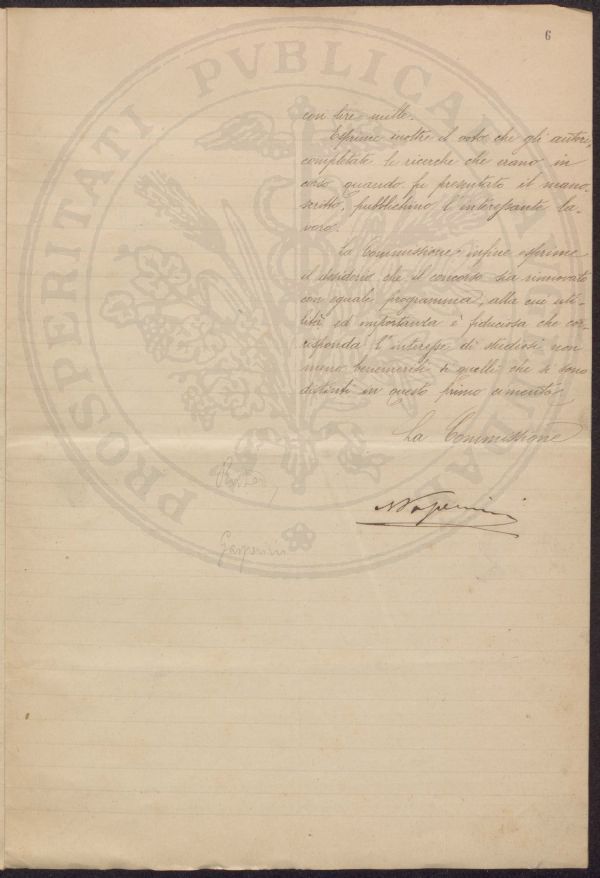 6
con lire mille.
Esprime inoltre il voto che gli autori,
completate le ricerche che erano in
corso quando fu presentato il mano-
scritto, pubblichino l'interessante la-
voro.
La Commissione infine esprime
il desiderio che il concorso sia rinnovato
con eguale programma, alla cui uti-
lità ed importanza è fiduciosa che cor-
risponda l'interesse di studiosi non
meno benemeriti di quelli che si sono
distinti in questo primo cimento.
La Commissione
Gasperini
PROSPERITATI PVBLICAE